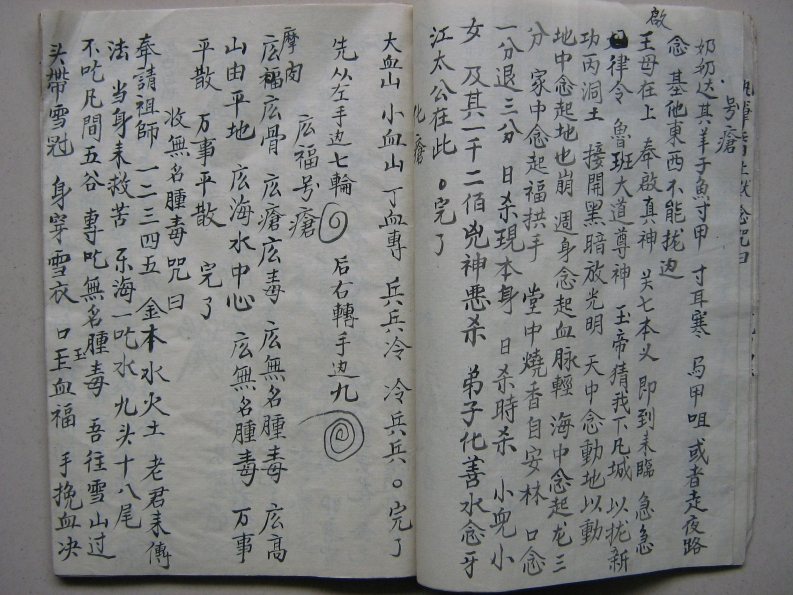 号瘡
奶奶达其羊子魚寸甲 寸耳寒 烏甲咀 或者走夜路
念 基他東西不能拢边
啟王母在上 奉啟真神 关七本义 即到耒臨 急急
律令 魯班大道尊神 玉帝猜我下凡城 以拢新
功丙洞土 接開黑暗放光明 天中念動地以動
地中念起地也崩 週身念起血脉輕 海中念起龙三
分 家中念起福拱手 堂中燒香自安林 口念
一分退三分 日杀現本身 日杀時杀 小兇小
女 及其一千二佰兇神悪杀 弟子化善水念牙
江太公在此 完了
化瘡
大血山 小血山 丁血專 兵兵冷 冷兵兵 完了
先从左手边七輪 后右轉手边九
広福号瘡
摩肉
広福広骨 広瘡広毒 広無名腫毒 広高
山由平地 広海水中心 広無名腫毒 万事
平散 万事平散 完了
收無名腫毒 咒曰
奉請祖師 一二三四五 金木水火土 老君耒傳
法 当身耒救苦 东海一吃水 九头十八尾
不吃凡間五谷 專吃無名腫毒 吾往雪山过
头带雪冠 身穿雪衣 口玉血福 手挽血决